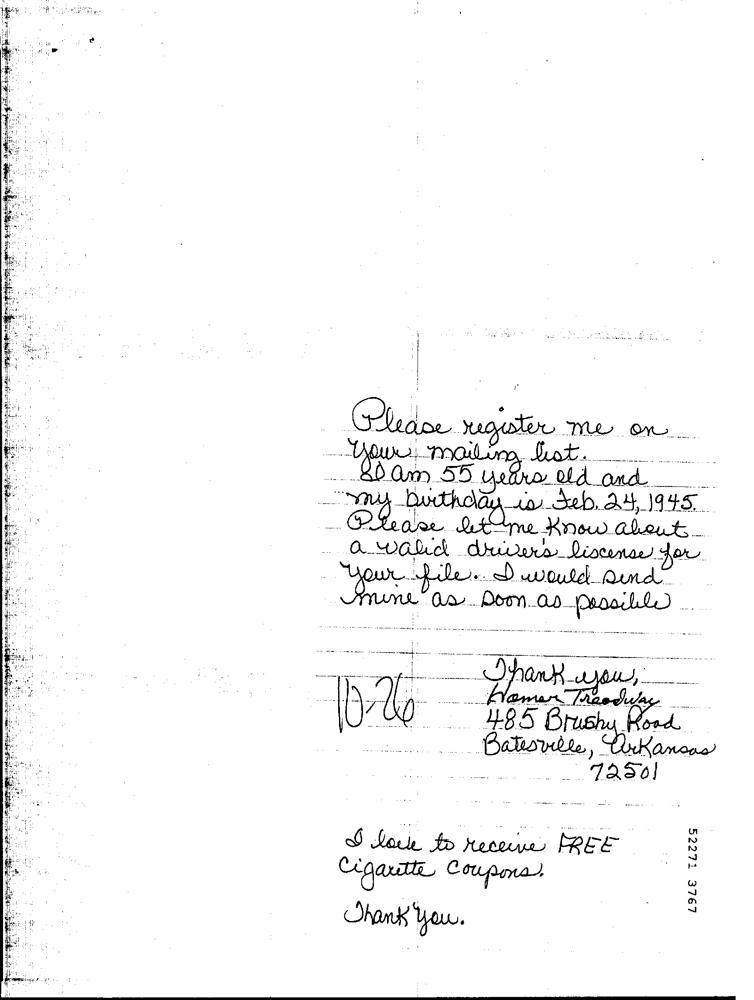 Please register me on
your mailing list.
I am 55 years old and
my birthday is Feb. 24, 1945.
Please let me know about
a valid driver's liscense for
your file. I would send
mine as soon as possible
Thank you,
Homer Treadway
10-26
485 Brushy Road
Batesville, Arkansas
72501
I love to receive FREE
Cigarette Coupons.
Thank you.
52271 3767